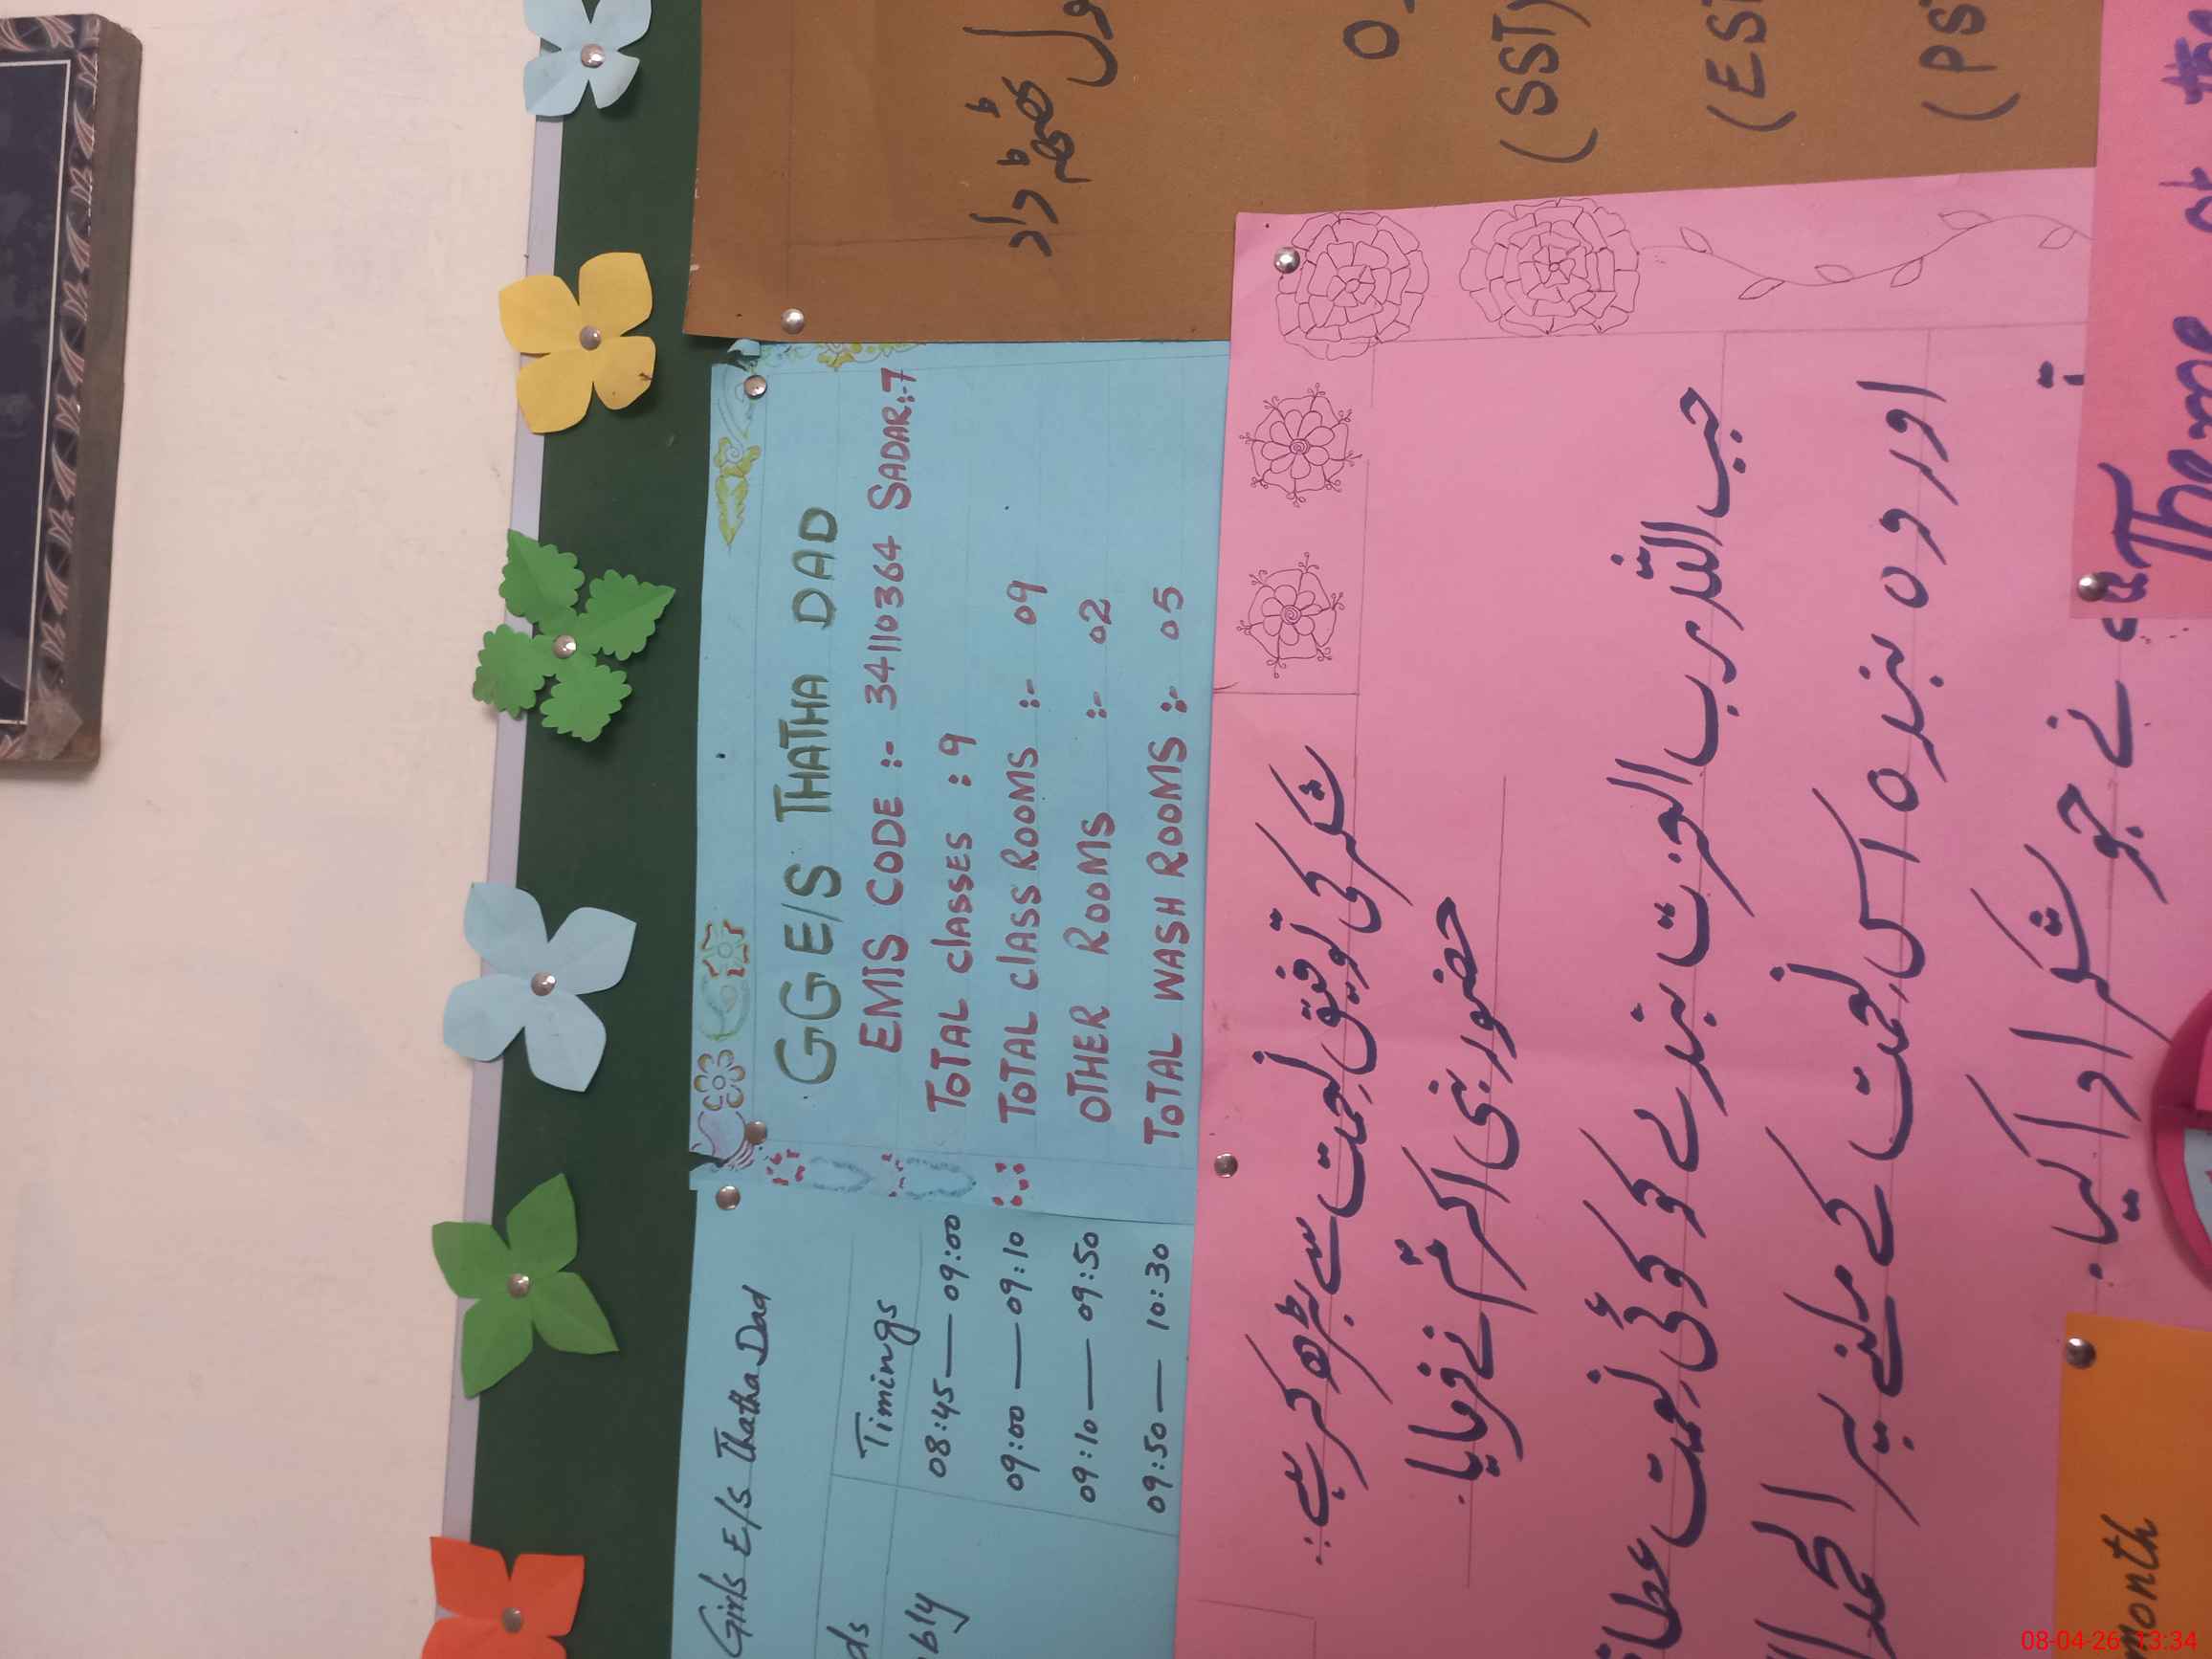 ول ٹھٹھہ داد
(SST)
GGE/S THATHA DAD
EMIS CODE :- 34110364 SADAR:-7
TOTAL Classes :9
TOTAL Class Rooms :- 09
OTHER ROOMS :- 02
TOTAL WASH ROOMS :- 05
Girls E/s Thatha Dad
Timings
08:45 — 09:00
09:00 — 09:10
09:10 — 09:50
09:50 — 10:30
شکر کی توفیق نعمت سے بڑھ کر ہے:
حضور نبی اکرمؐ نے فرمایا.
جب اللہ رب العزت بندے کو کوئی نعمت عطا
اور وہ بندہ اس نعمت کے ملنے پر الحمد
نے جو شکر ادا کیا.
Theme of the
month
08-04-26 13:34